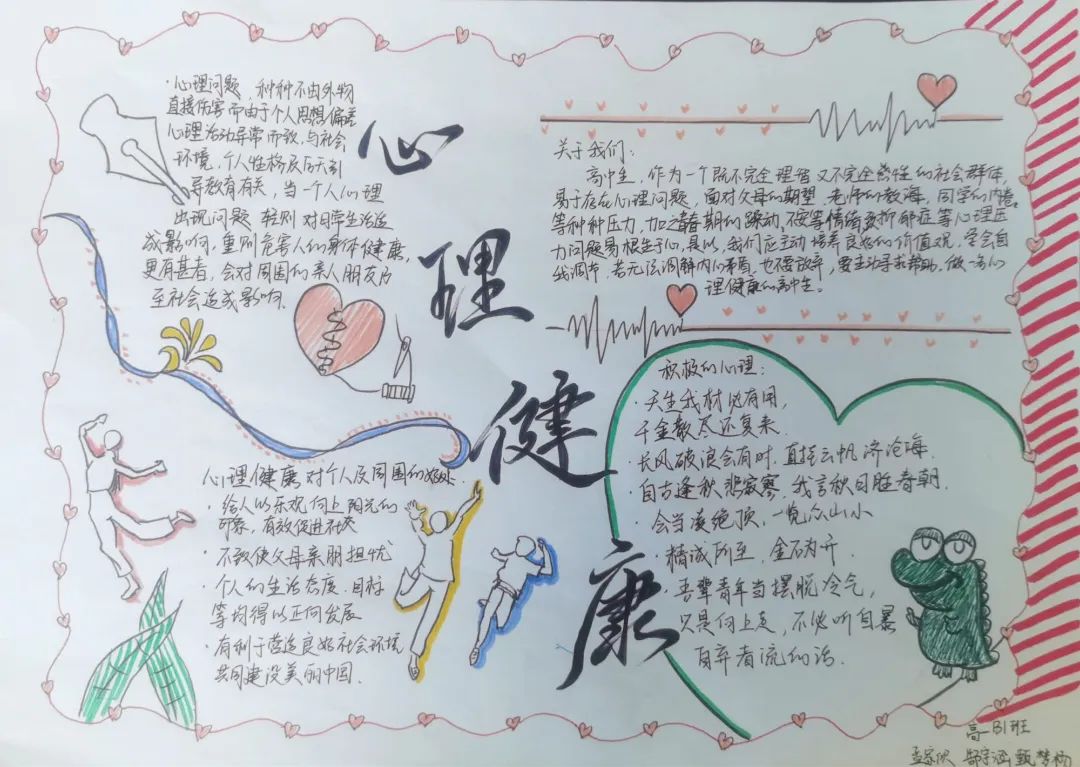 心理健康
·心理问题 种种不由外物
直接伤害而由于个人思想偏差
心理活动异常而致,与社会
环境,个人性格及后天引
导教育有关,当一个人心理
出现问题 轻则对日常生活造
成影响,重则危害人的身体健康,
更有甚者,会对周围的亲人朋友乃
至社会造成影响.
关于我们:
高中生,作为一个既不完全理智又不完全感性的社会群体,
易于存在心理问题,面对父母的期望、老师的教诲,同学的内卷,
等种种压力,加之青春期的躁动、不安等情绪,抑郁症等心理压
力问题易根生于心,是以,我们应主动培养良好的价值观,学会自
我调节,若无法调解内心矛盾,也不要放弃,要主动寻求帮助,做一名心
理健康的高中生。
积极的心理:
·天生我材必有用,
千金散尽还复来.
·长风破浪会有时,直挂云帆济沧海.
·自古逢秋悲寂寥,我言秋日胜春朝.
·会当凌绝顶,一览众山小
·精诚所至,金石为开.
·吾辈青年当摆脱冷气,
只是向上走,不必听自暴
自弃者流的话.
心理健康对个人及周围的好处.
·给人以乐观向上阳光的
印象,有效促进社交
·不致使父母亲朋担忧
·个人的生活态度、目标
等均得以正向发展
·有利于营造良好社会环境,
共同建设美丽中国.
高一B1班